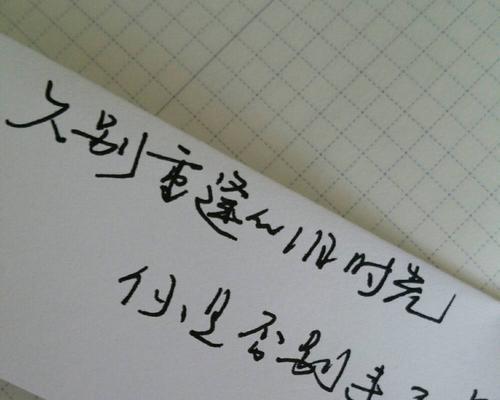 久别重逢的旧时光
你是否别来